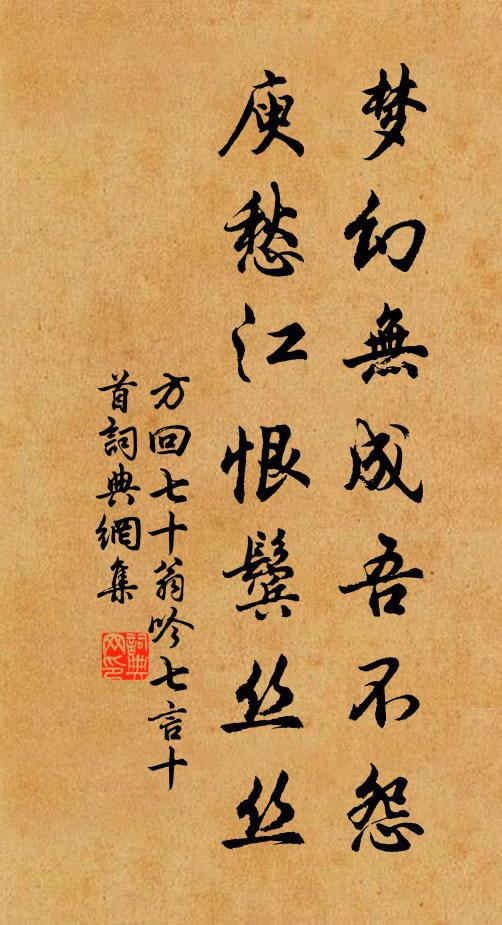 梦幻無成吾不怨
庾愁江恨鬓丝丝
方回七十翁吟七言十
首詞典網集
詞典网印